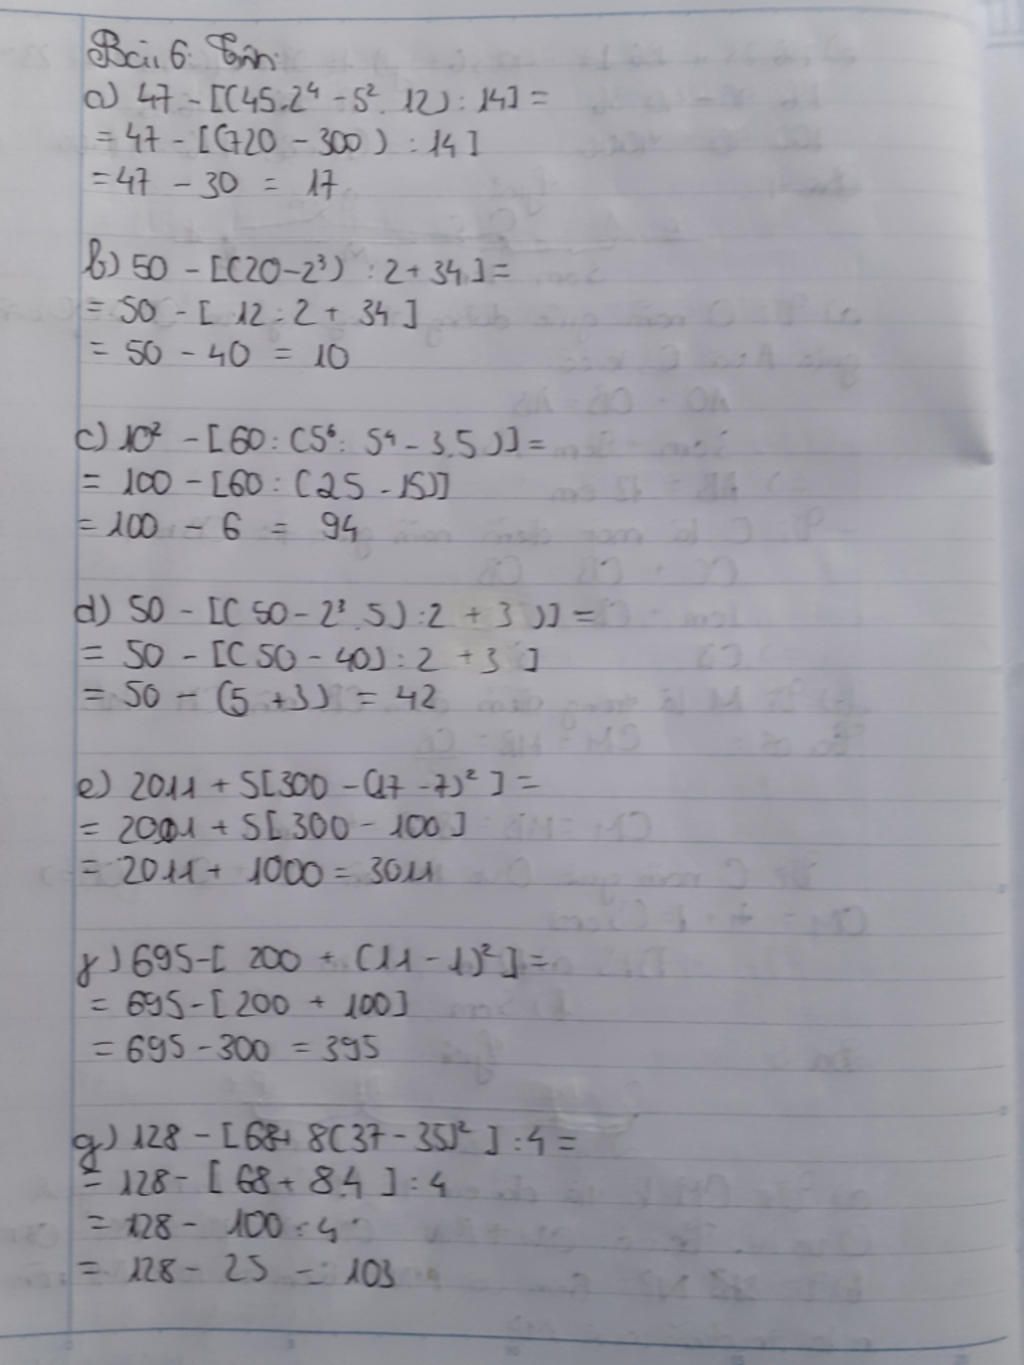 Bài 6: Tính:
a) 47 - [(45.2⁴ - 5². 12) : 14] =
= 47 - [(720 - 300) : 14]
= 47 - 30 = 17
b) 50 - [(20-2³) : 2 + 34] =
= 50 - [ 12 : 2 + 34 ]
= 50 - 40 = 10
c) 10² - [60 : (5⁶ : 5⁴ - 3.5)] =
= 100 - [60 : (25 - 15)]
= 100 - 6 = 94
d) 50 - [( 50 - 2³.5) : 2 + 3 )] =
= 50 - [( 50 - 40) : 2 + 3 ]
= 50 - (5 + 3) = 42
e) 2011 + 5[300 - (17 - 7)² ] =
= 2011 + 5[ 300 - 100 ]
= 2011 + 1000 = 3011
f) 695 - [ 200 + (11 - 1)² ] =
= 695 - [200 + 100]
= 695 - 300 = 395
g) 128 - [68+ 8(37 - 35)² ] : 4 =
= 128 - [ 68 + 8.4 ] : 4
= 128 - 100 : 4
= 128 - 25 = 103